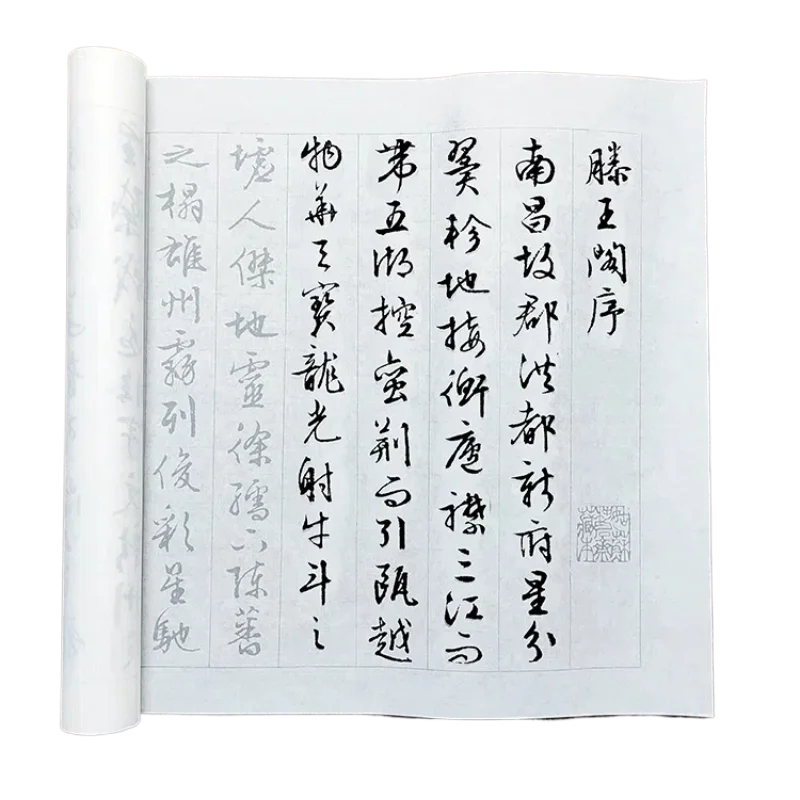 滕王阁序
南昌故郡洪都新府星分
翼轸地接衡庐襟三江而
带五湖控蛮荆而引瓯越
物华天寶龍光射牛斗之
墟人傑地靈徐孺下陳蕃
之榻雄州霧列俊彩星馳